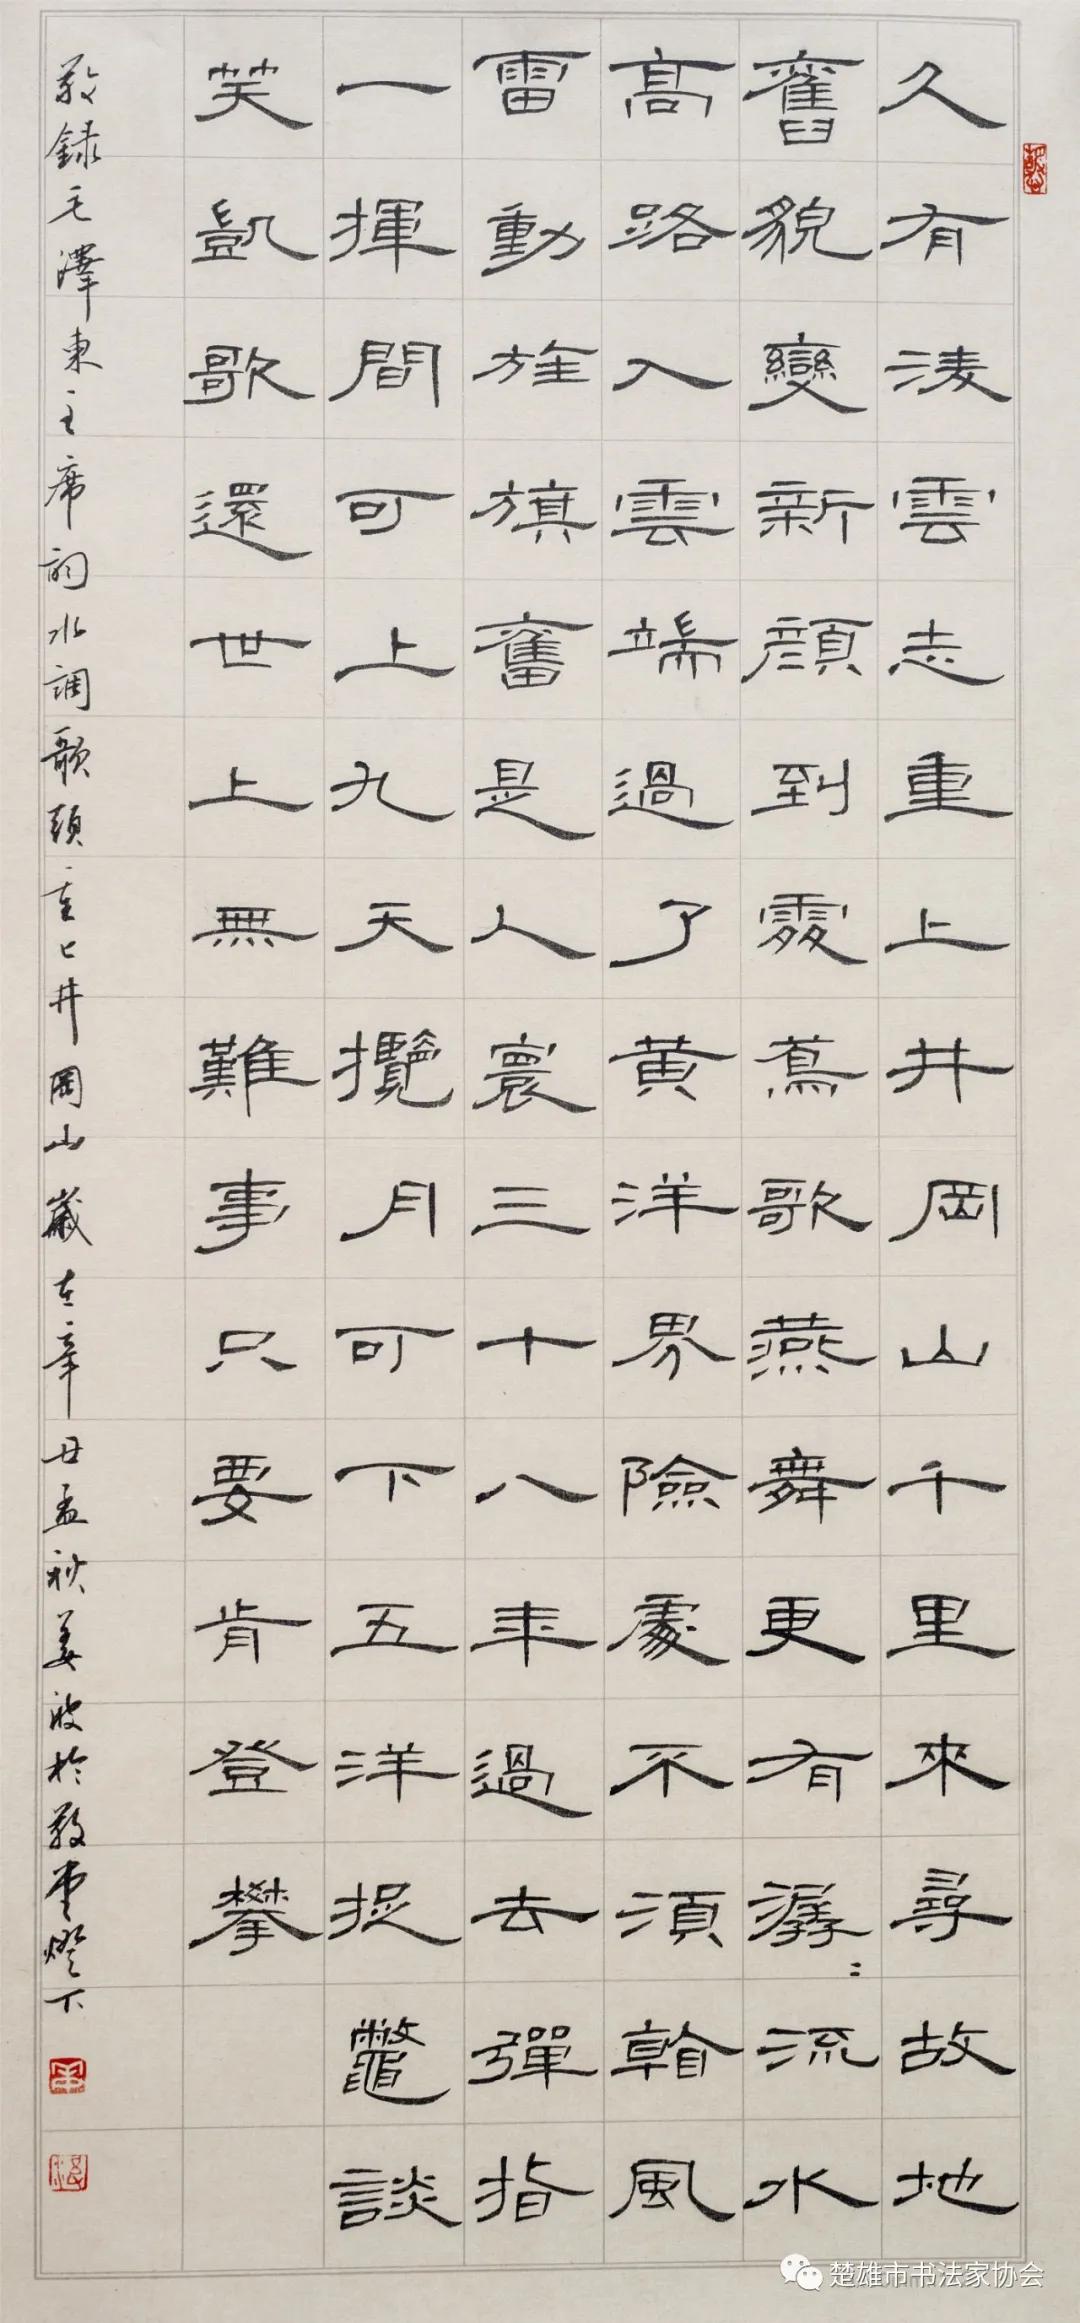 久有淩雲志重上井岡山千里來尋故地
舊貌變新顏到處鶯歌燕舞更有潺〻流水
高路入雲端過了黃洋界險處不須看風
雷動旌旗奮是人寰三十八年過去彈指
一揮間可上九天攬月可下五洋捉鼈談
笑凱歌還世上無難事只要肯登攀
敬錄毛澤東主席詞水調歌頭重上井岡山歲在辛丑孟秋姜波於堂燈下
楚雄市书法家协会